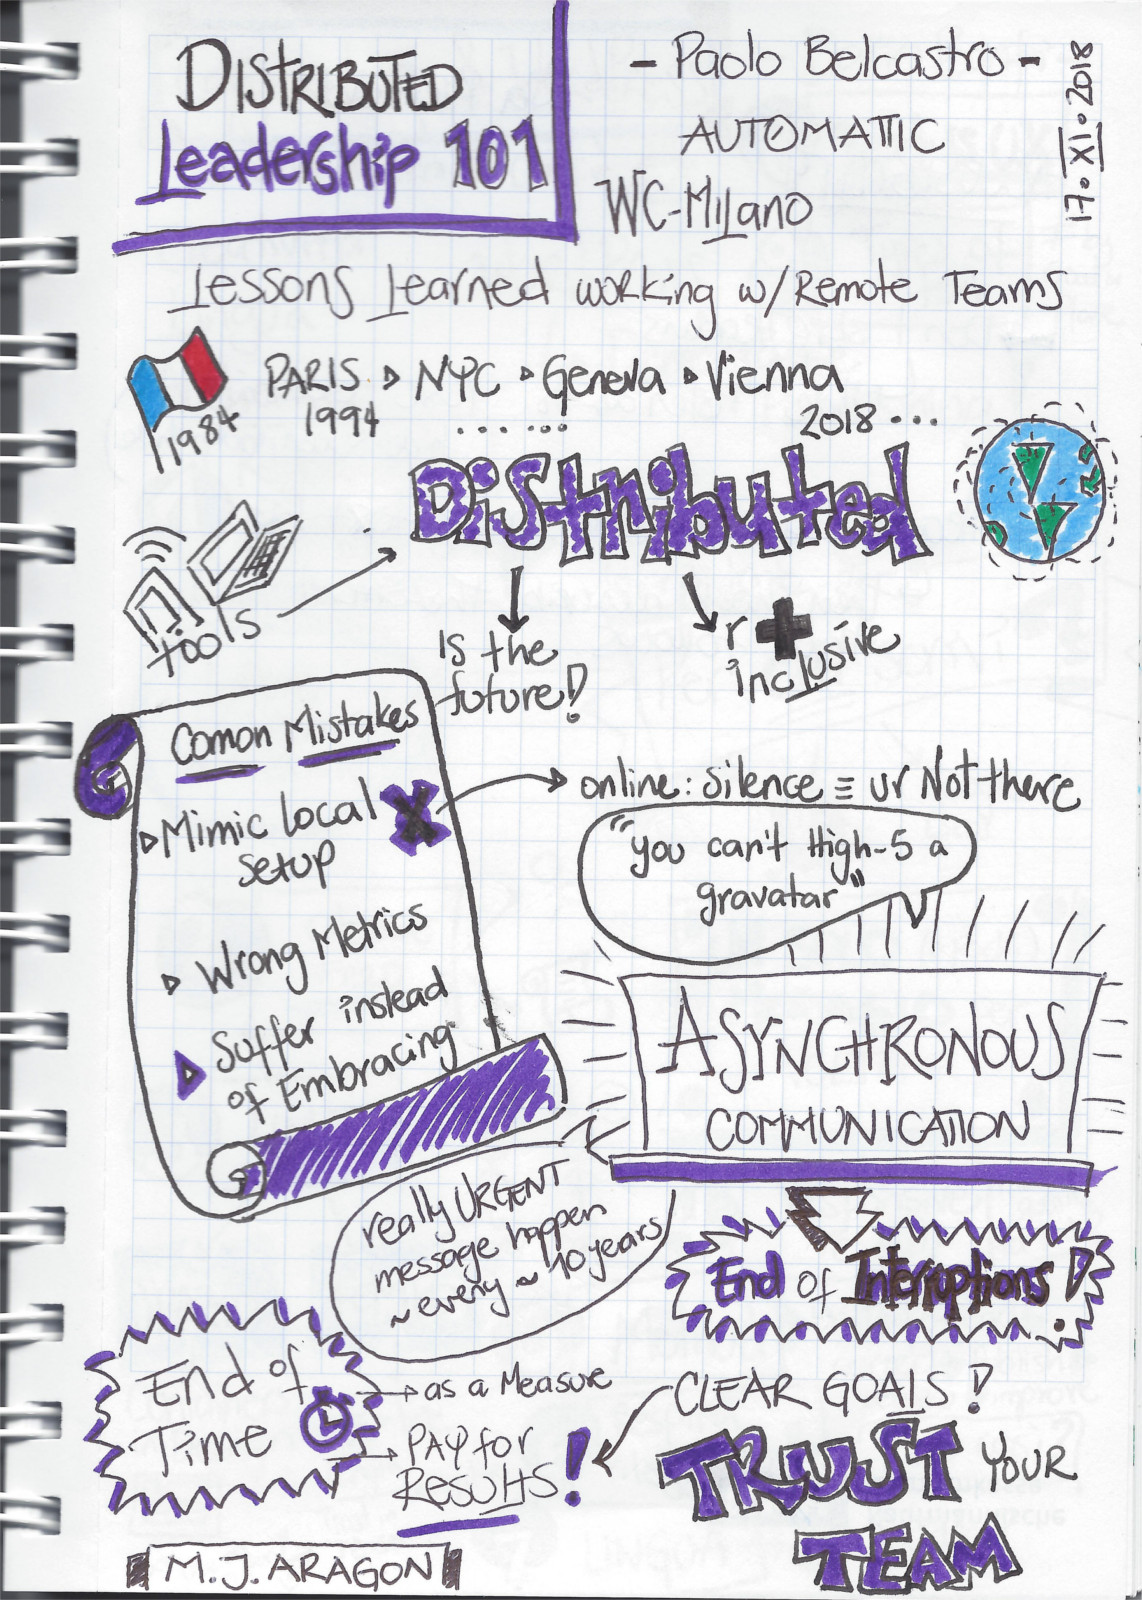 DISTRIBUTED
Leadership 101
- Paolo Belcastro -
AUTOMATTIC
WC-MiLano
17.XI.2018
Lessons Learned working w/ Remote Teams
1984
PARIS ▷ NYC ▷ Geneva ▷ Vienna
1994 ...... 2018 ...
Distributed
tools
Is the
future!
r +
inclusive
Comon Mistakes
▷ Mimic Local X
setup
▷ Wrong Metrics
▷ Suffer instead
of Embracing
online: silence ≡ ur Not there
"you can't High-5 a
gravatar"
ASYNCHRONOUS
COMMUNICATION
really URGENT
message happen
~ every ~ 10 years
End of Interruptions!
End of
Time
→ as a Measure
→ PAY for
Results!
CLEAR GOALS!
TRUST YOUR
TEAM
M.J.ARAGON